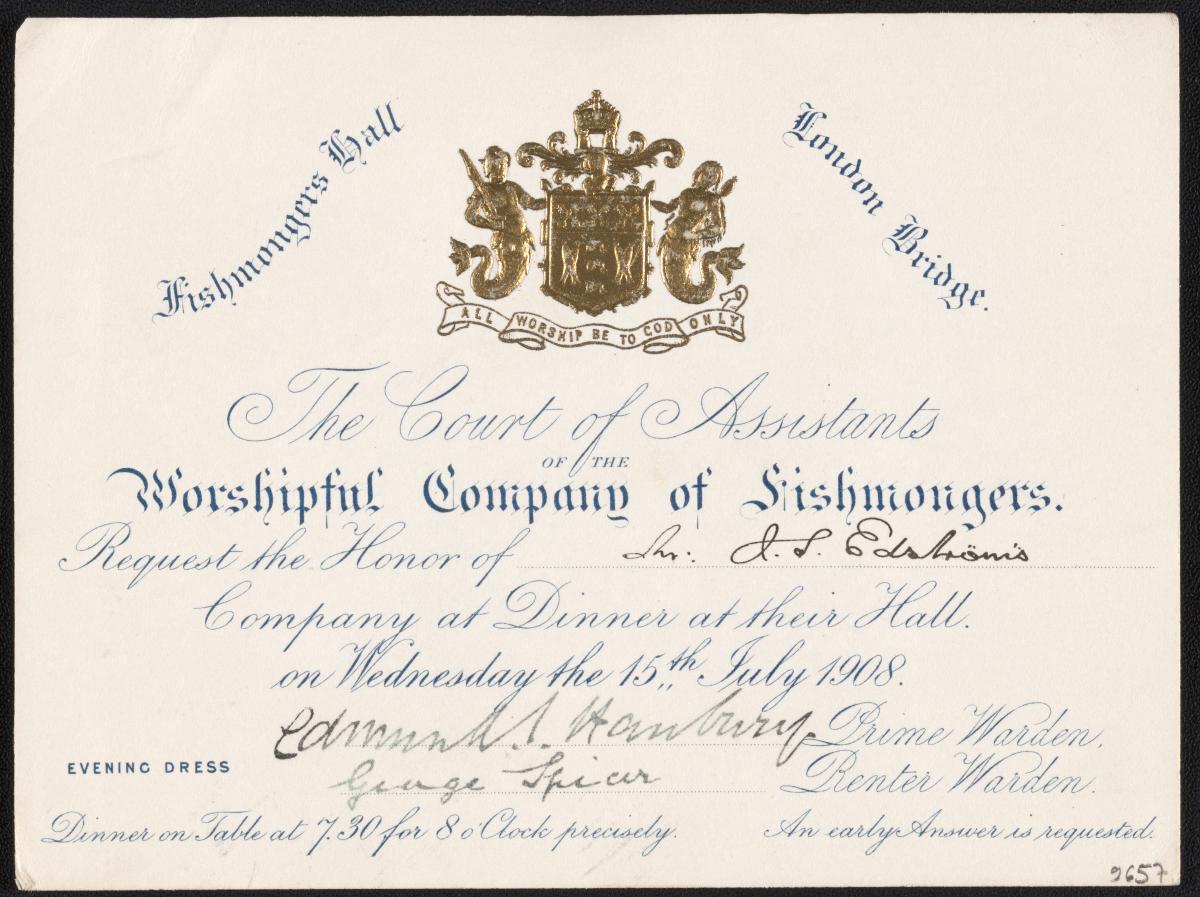 Fishmongers Hall
London Bridge.
ALL WORSHIP BE TO GOD ONLY
The Court of Assistants
OF THE
Worshipful Company of Fishmongers.
Request the Honor of J. S. Edström's
Company at Dinner at their Hall.
on Wednesday the 15th July 1908.
Edmund S. Hanbury Prime Warden.
EVENING DRESS
George Spicer Renter Warden.
Dinner on Table at 7.30 for 8 o'Clock precisely. An early Answer is requested.
9657